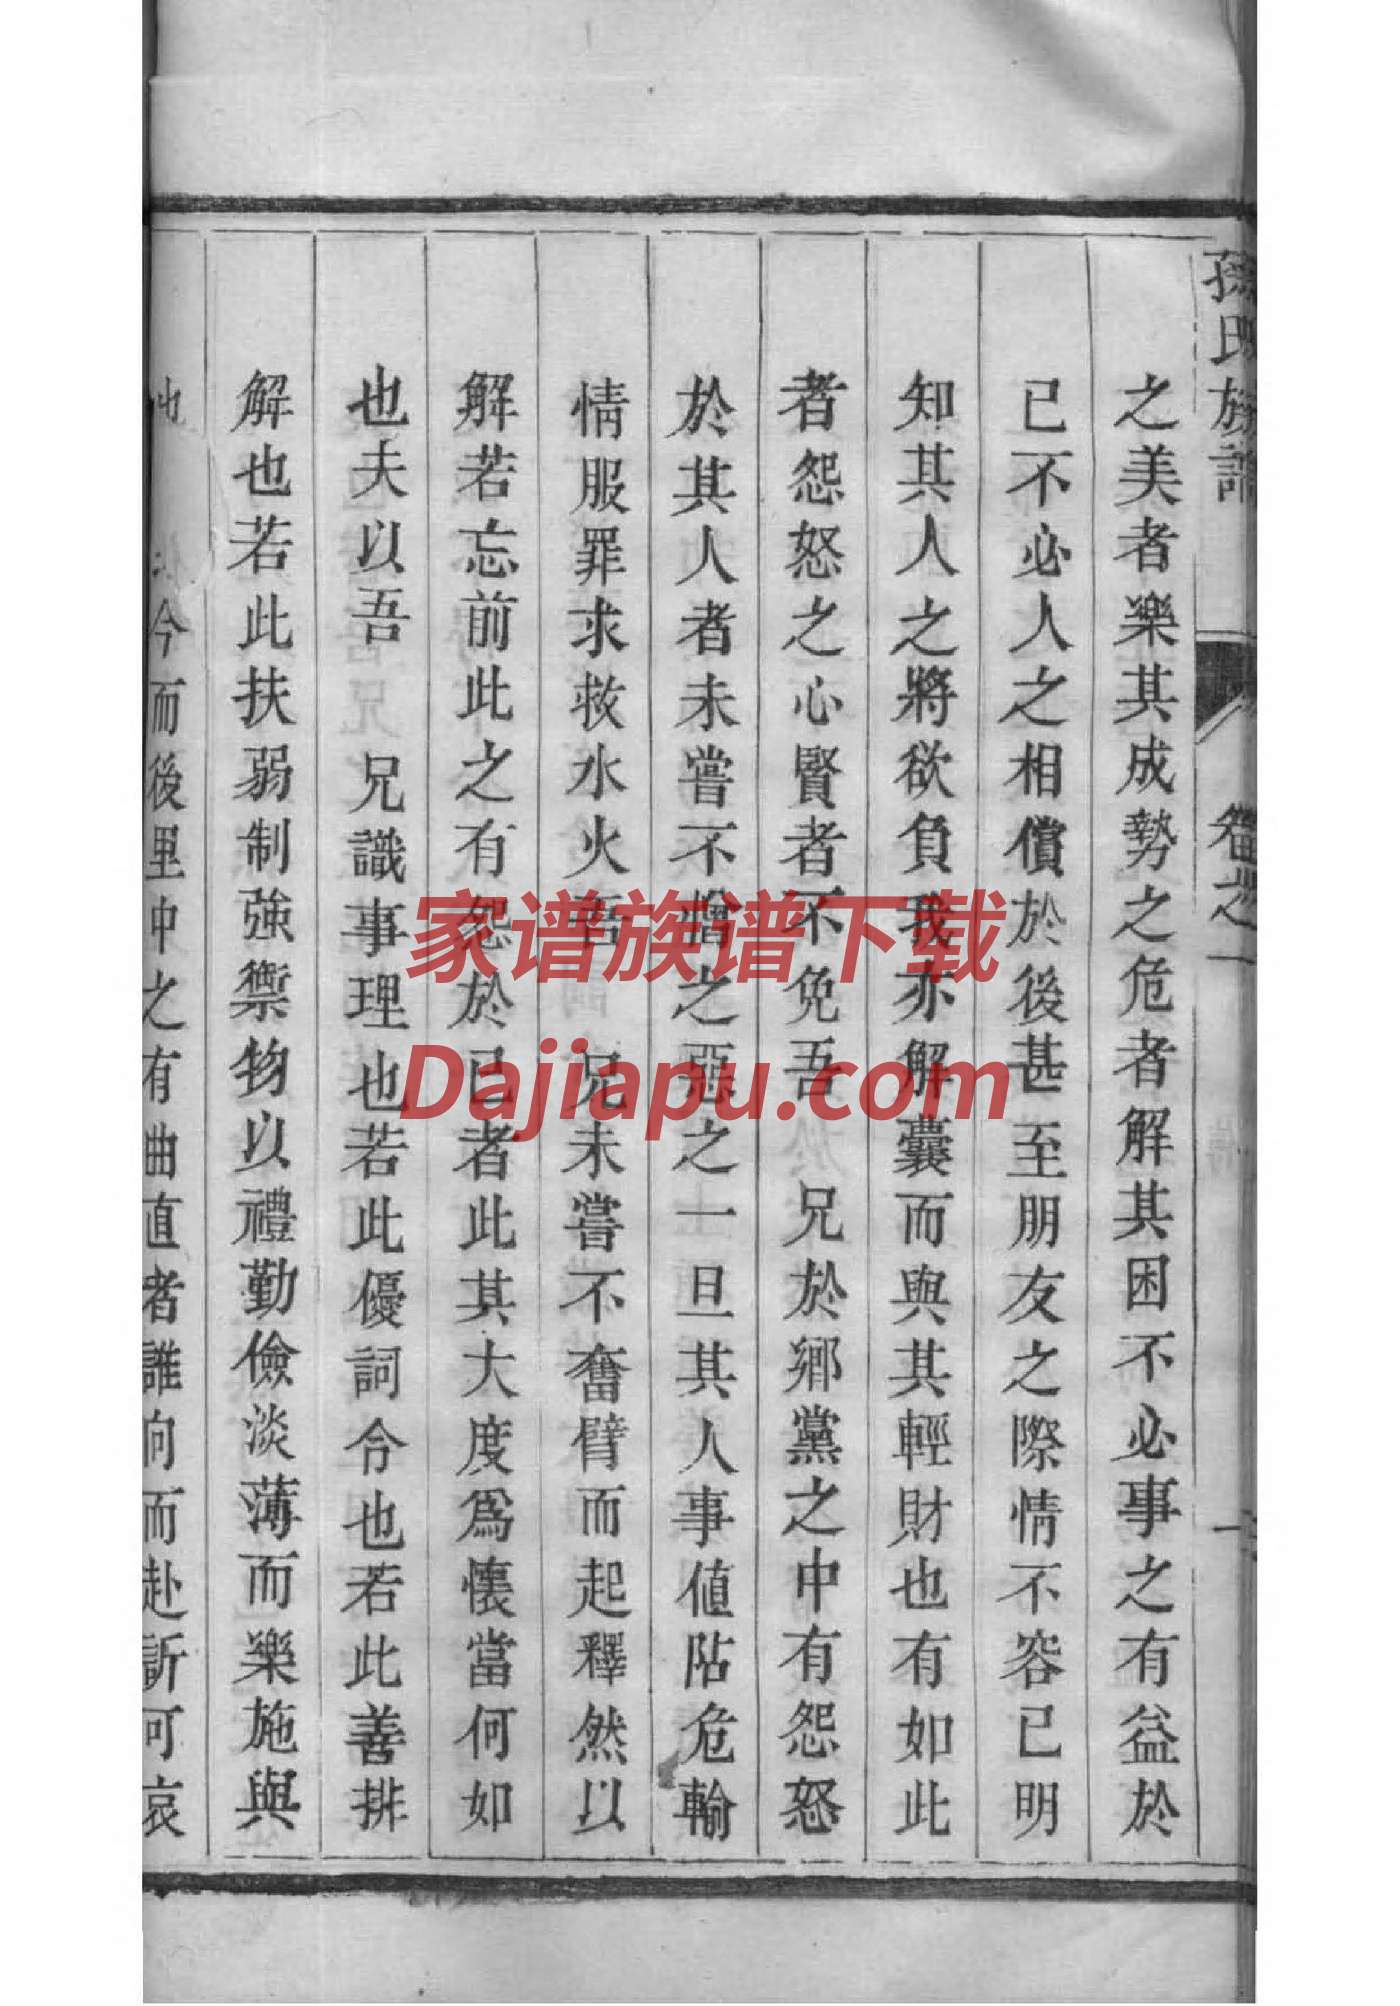 孫氏族譜
卷之一
之美者樂其成勢之危者解其困不必事之有益於
已不必人之相償於後甚至朋友之際情不容已明
知其人之將欲負我亦解囊而與其輕財也有如此
者怨怒之心賢者不免吾 兄於鄉黨之中有怨怒
於其人者未嘗不憎之惡之一旦其人事值阽危輸
情服罪求救水火吾 兄未嘗不奮臂而起釋然以
解若忘前此之有怨於已者此其大度爲懷當何如
也夫以吾 兄識事理也若此優詞令也若此善排
解也若此扶弱制強禦物以禮勤儉淡薄而樂施與
也 今而後里中之有曲直者誰向而赴訴可哀
家谱族谱下载
Dajiapu.com